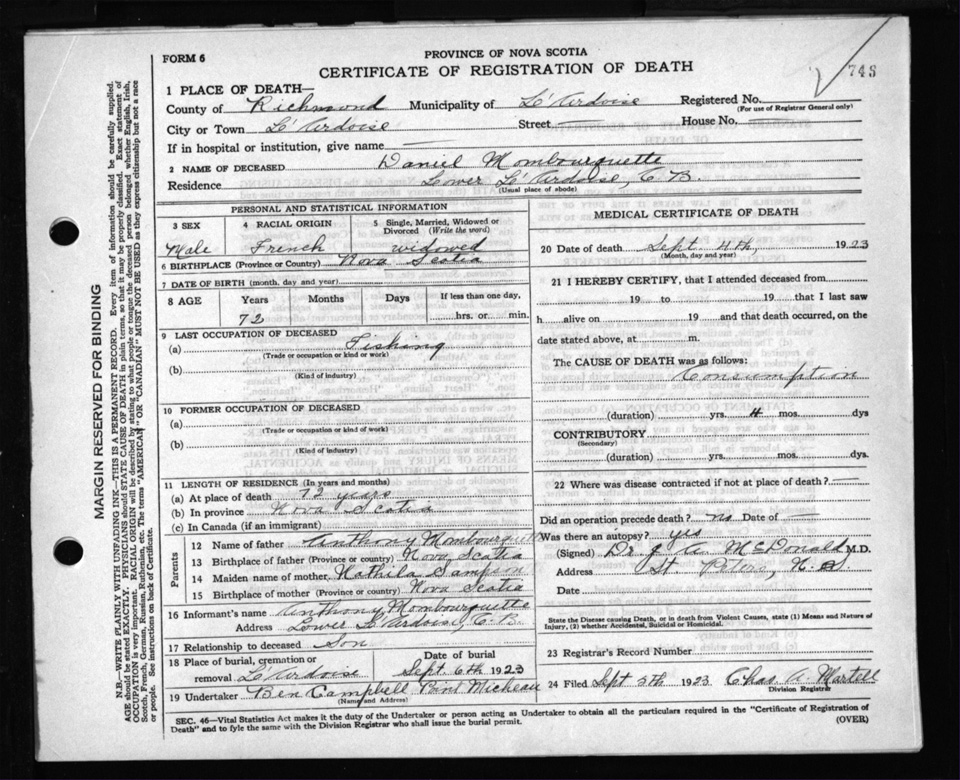 FORM 6
PROVINCE OF NOVA SCOTIA
CERTIFICATE OF REGISTRATION OF DEATH
748
1 PLACE OF DEATH—
County of Richmond Municipality of L'Ardoise Registered No.
(For use of Registrar General only)
City or Town L'Ardoise Street — House No. —
If in hospital or institution, give name —
2 NAME OF DECEASED Daniel Mombourquette
Residence Lower L'Ardoise, C. B.
(Usual place of abode)
PERSONAL AND STATISTICAL INFORMATION
3 SEX 4 RACIAL ORIGIN 5 Single, Married, Widowed or Divorced (Write the word)
Male French widowed
6 BIRTHPLACE (Province or Country) Nova Scotia
7 DATE OF BIRTH (month, day and year)
8 AGE Years Months Days If less than one day,
72 hrs. or min.
9 LAST OCCUPATION OF DECEASED
(a) Fishing
(Trade or occupation or kind or work)
(b)
(Kind of industry)
10 FORMER OCCUPATION OF DECEASED
(a)
(Trade or occupation or kind of work)
(b)
(Kind of industry)
11 LENGTH OF RESIDENCE (In years and months)
(a) At place of death 72 years
(b) In province Nova Scotia
(c) In Canada (if an immigrant)
Parents
12 Name of father Anthony Mombourquette
13 Birthplace of father (Province or Country) Nova Scotia
14 Maiden name of mother Mathila Sampson
15 Birthplace of mother (Province or Country) Nova Scotia
16 Informant's name Anthony Mombourquette
Address Lower L'Ardoise, C. B.
17 Relationship to deceased Son
18 Place of burial, cremation or removal L'Ardoise Date of burial Sept. 6th 1923
19 Undertaker Ben Campbell Point Micheau
(Name and Address)
MEDICAL CERTIFICATE OF DEATH
20 Date of death Sept 4th, 1923
(Month, day and year)
21 I HEREBY CERTIFY, that I attended deceased from
19 to 19 that I last saw
h alive on 19 and that death occurred, on the
date stated above, at m.
The CAUSE OF DEATH was as follows:
Consumption
(duration) yrs. 4 mos. dys
CONTRIBUTORY
(Secondary)
(duration) yrs. mos. dys.
22 Where was disease contracted if not at place of death? —
Did an operation precede death? no Date of —
Was there an autopsy? yes
(Signed) Dr J A. McDonald M.D.
Address St. Peters, N. S.
Date
State the Disease causing Death, or in death from Violent Causes, state (1) Means and Nature of
Injury, (2) whether Accidental, Suicidal or Homicidal.
23 Registrar's Record Number
24 Filed Sept 5th 1923 Chas A. Martell
Division Registrar
SEC. 46—Vital Statistics Act makes it the duty of the Undertaker or person acting as Undertaker to obtain all the particulars required in the "Certificate of Registration of
Death" and to fyle the same with the Division Registrar who shall issue the burial permit. (OVER)
MARGIN RESERVED FOR BINDING
N.B.—WRITE PLAINLY WITH UNFADING INK—THIS IS A PERMANENT RECORD. Every item of information should be carefully supplied.
AGE should be stated EXACTLY. PHYSICIANS should STATE CAUSE OF DEATH in plain terms, so that it may be properly classified. Exact statement of
OCCUPATION is very important. RACIAL ORIGIN will be described by stating to what people or tongue the deceased person belonged whether English, Irish,
Scotch, French, German, Russian, Ruthenian, etc. The terms "AMERICAN" OR "CANADIAN" MUST NOT BE USED as they express citizenship but not a race
or people. See instructions on back of Certificate.